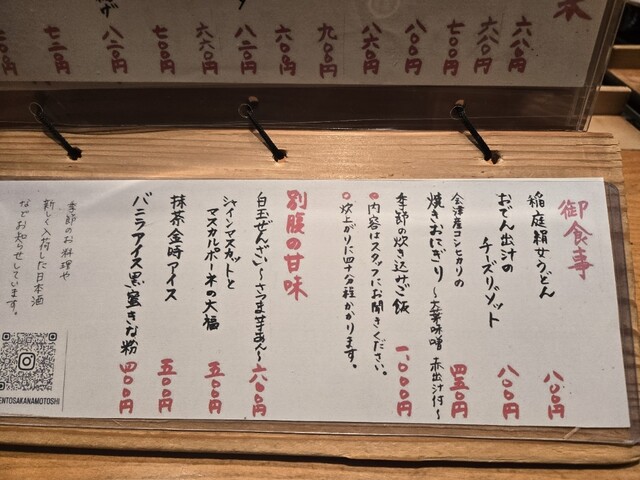 六八〇円
六八〇円
七〇〇円
八〇〇円
八六〇円
九〇〇円
六〇〇円
六六〇円
五〇〇円
八二〇円
七二〇円
御食事
稲庭絹女うどん
八八〇円
おでん出汁の
チーズリゾット
八〇〇円
会津産コシヒカリの
焼きおにぎり
〜左葉味噌 赤出汁付〜
四五〇円
季節の炊き込みご飯
一、〇〇〇円
○内容はスタッフにお聞きください。
○炊上がりに四十分程かかります。
別腹の甘味
白玉ぜんざい〜さつま芋あん〜
六〇〇円
シャインマスカットと
マスカルポーネの大福
五〇〇円
抹茶金時アイス
五〇〇円
バニラアイス黒蜜きな粉
四〇〇円
季節のお料理や
新しく入荷した日本酒
などお知らせしています。
ENTOSAKANAMOTOSHI